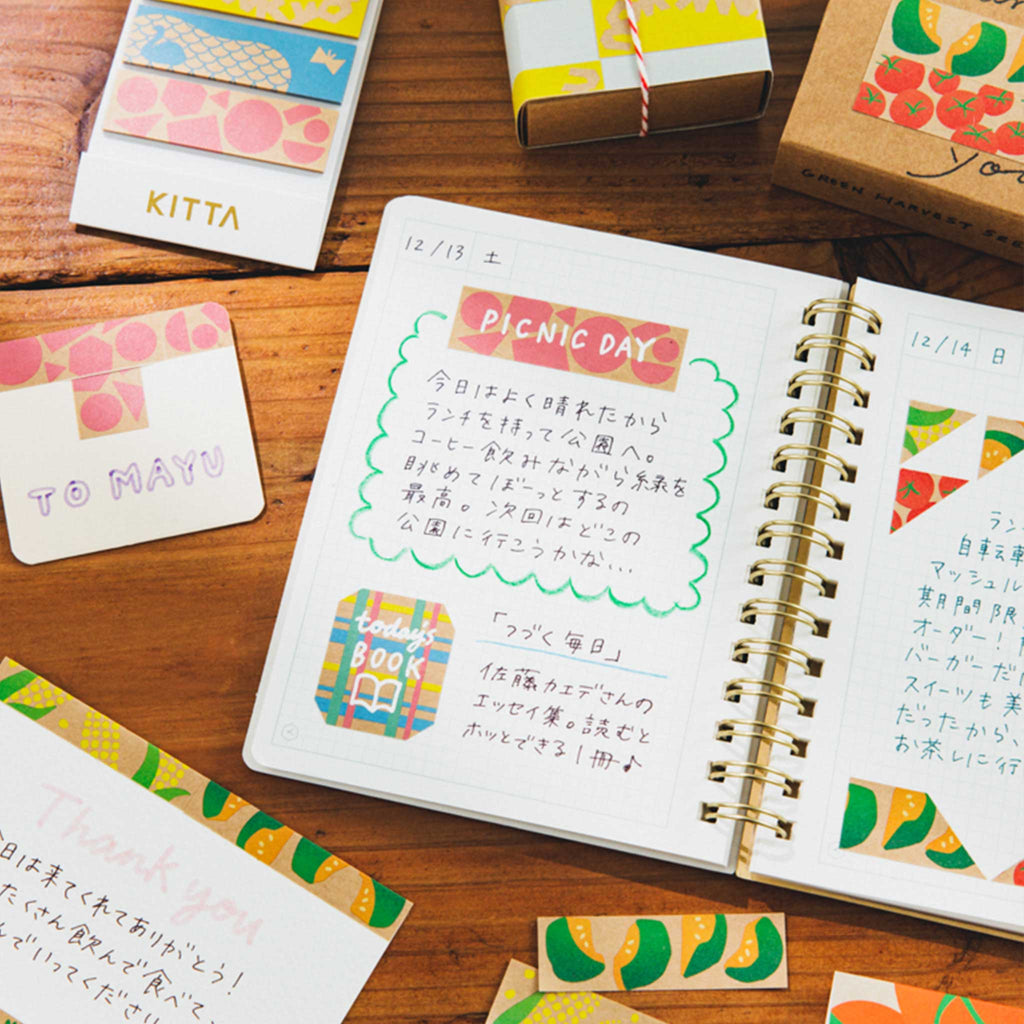 KITTA
GREEN HARVEST
TO MAYU
12/13 土
PICNIC DAY
今日はよく晴れたから
ランチを持って公園へ。
コーヒー飲みながら緑を
眺めてぼーっとするの
最高。次回はどこの
公園に行こうかな...
today's
BOOK
「つづく毎日」
佐藤カエデさんの
エッセイ集。読むと
ホッとできる1冊♪
12/14 日
ラン
自転車
マッシュル
期間限
オーダー!
バーガーだ
スイーツも美
だったから、
お茶しに行
Thank you
日は来てくれてありがとう!
たくさん飲んで食べて、
んでいってください